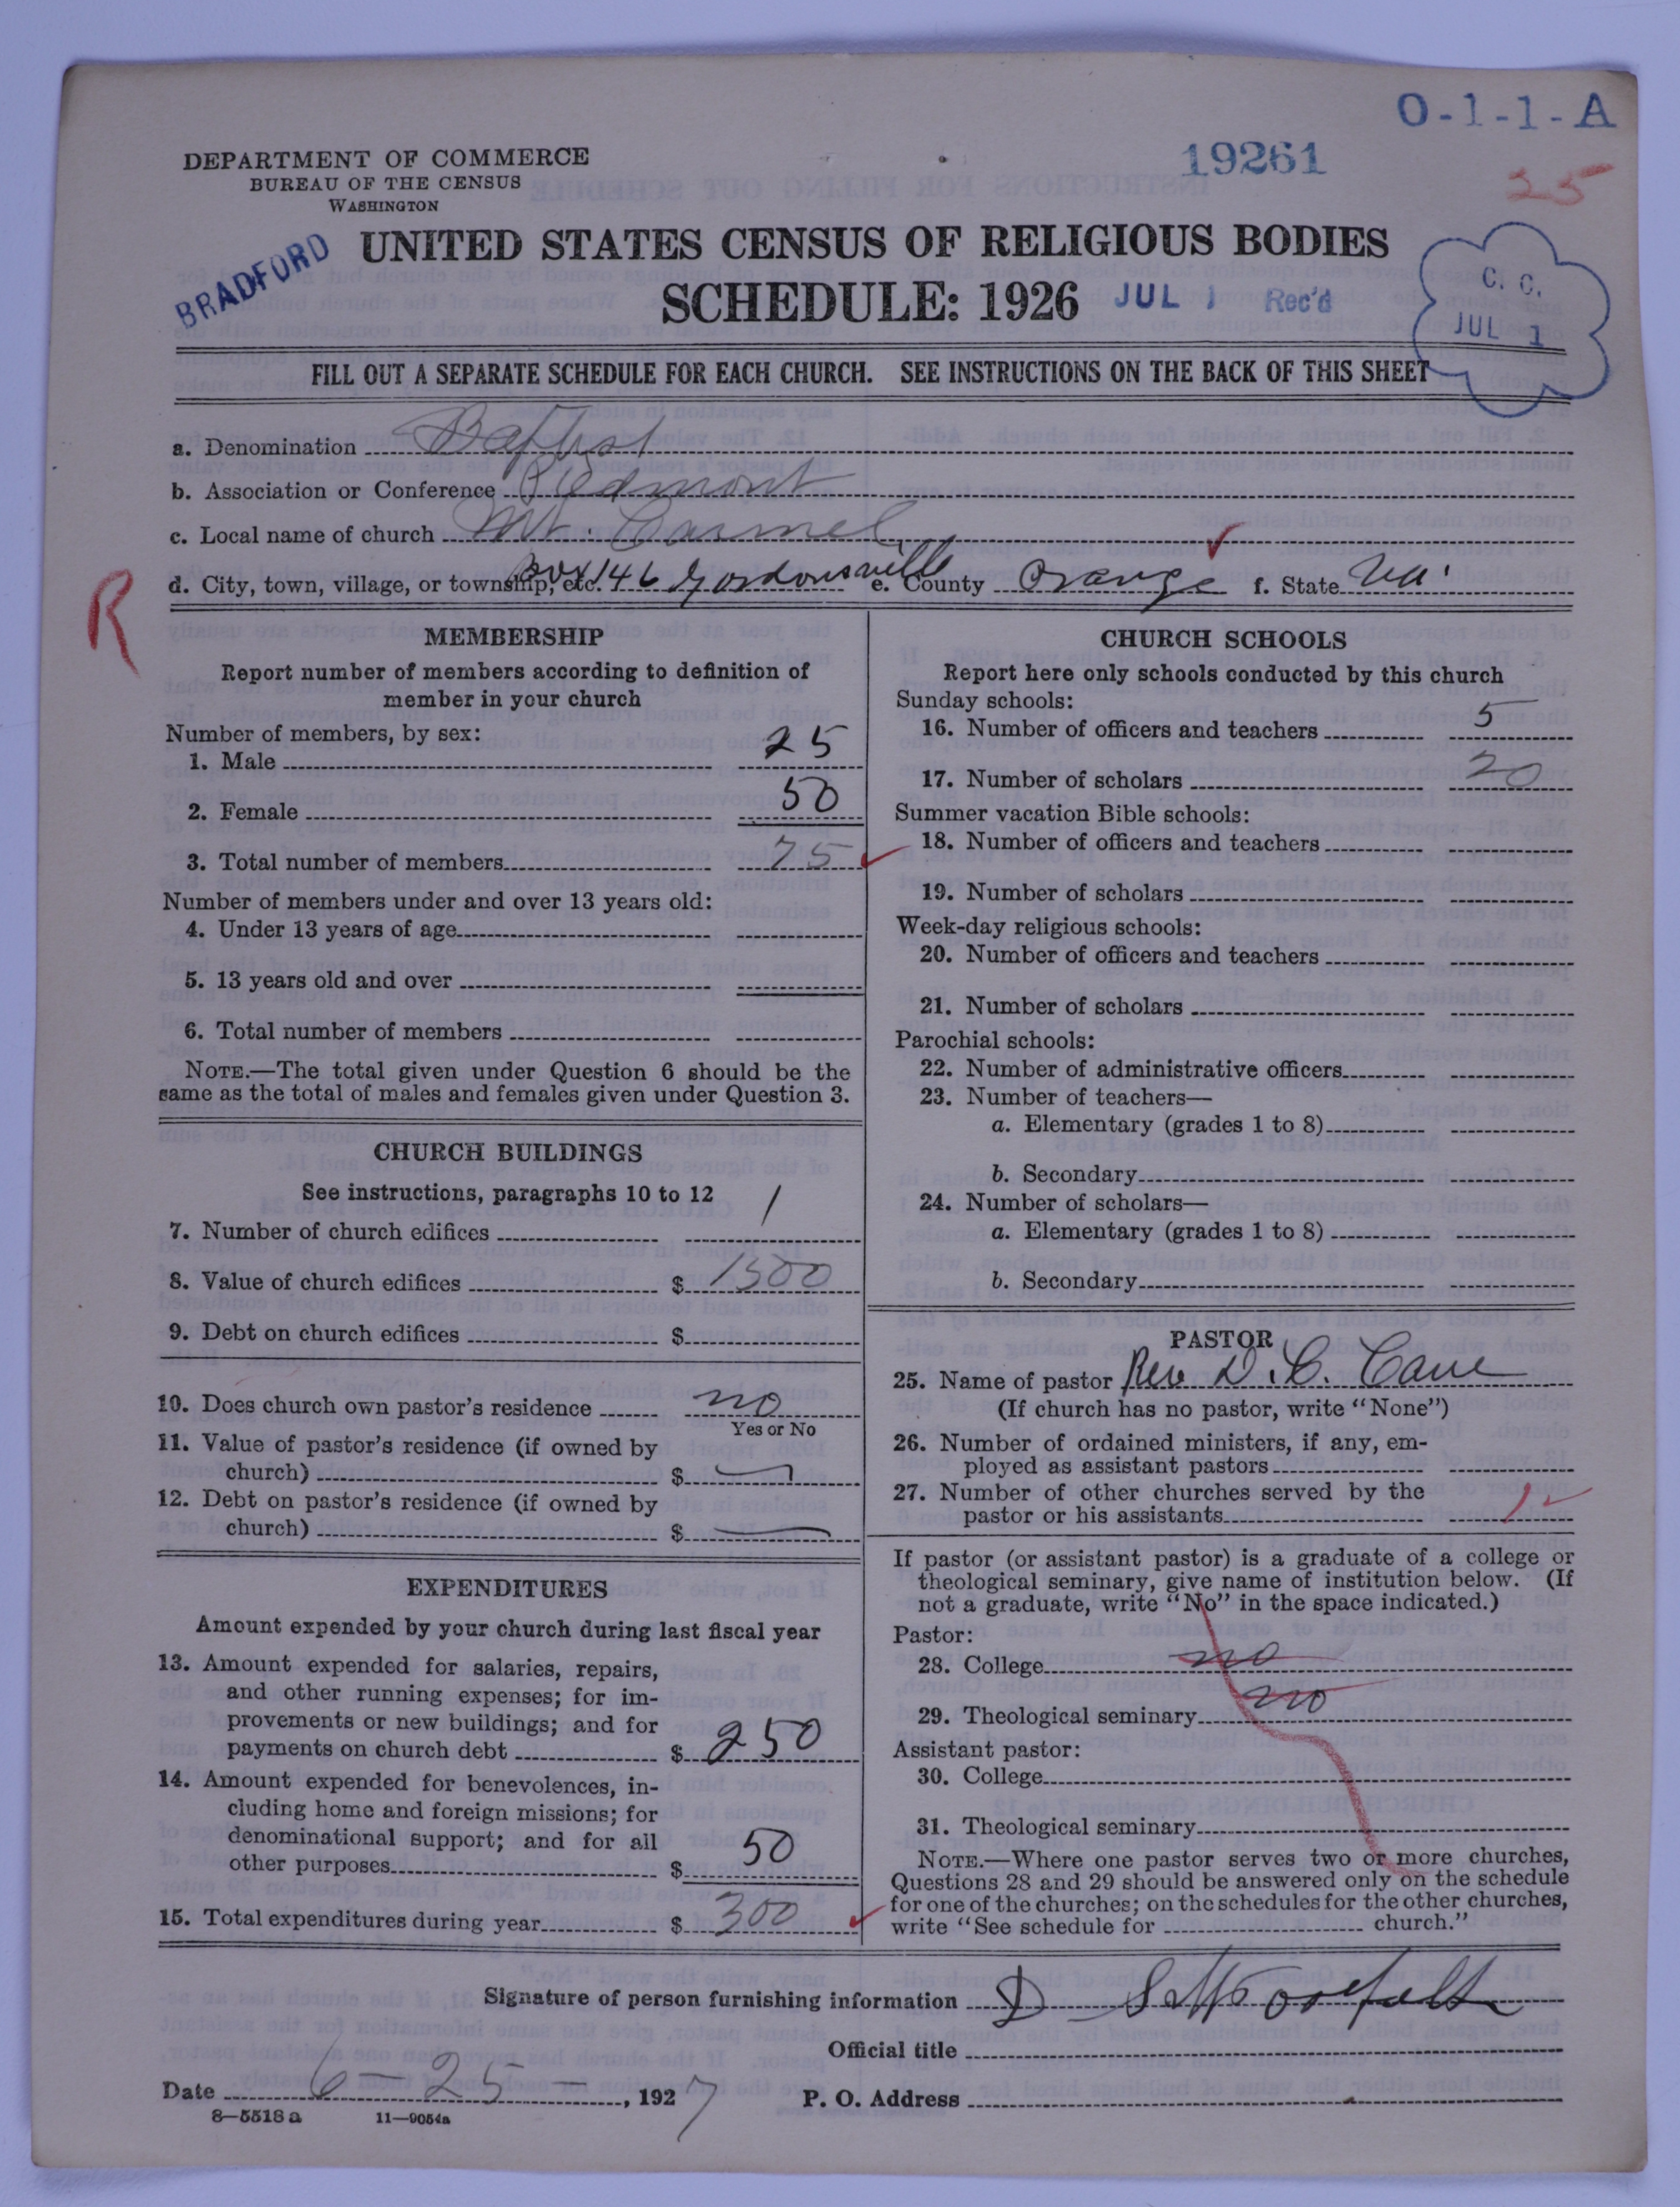 O-1-1-A
DEPARTMENT OF COMMERCE
BUREAU OF THE CENSUS
WASHINGTON
19261
25
BRADFORD
UNITED STATES CENSUS OF RELIGIOUS BODIES
SCHEDULE: 1926
JUL 1 Rec'd
C. C.
JUL 1
FILL OUT A SEPARATE SCHEDULE FOR EACH CHURCH. SEE INSTRUCTIONS ON THE BACK OF THIS SHEET
a. Denomination Baptist
b. Association or Conference Piedmont
c. Local name of church Mt. Carmel
d. City, town, village, or township, etc. Box 146 Gordonsville e. County Orange f. State Va.
R
MEMBERSHIP
Report number of members according to definition of
member in your church
Number of members, by sex:
1. Male 25
2. Female 50
3. Total number of members 75
Number of members under and over 13 years old:
4. Under 13 years of age
5. 13 years old and over
6. Total number of members
NOTE.—The total given under Question 6 should be the
same as the total of males and females given under Question 3.
CHURCH BUILDINGS
See instructions, paragraphs 10 to 12
7. Number of church edifices 1
8. Value of church edifices $ 1500
9. Debt on church edifices $
10. Does church own pastor's residence no
Yes or No
11. Value of pastor's residence (if owned by
church) $ —
12. Debt on pastor's residence (if owned by
church) $ —
EXPENDITURES
Amount expended by your church during last fiscal year
13. Amount expended for salaries, repairs,
and other running expenses; for im-
provements or new buildings; and for
payments on church debt $ 250
14. Amount expended for benevolences, in-
cluding home and foreign missions; for
denominational support; and for all
other purposes $ 50
15. Total expenditures during year $ 300
CHURCH SCHOOLS
Report here only schools conducted by this church
Sunday schools:
16. Number of officers and teachers 5
17. Number of scholars 20
Summer vacation Bible schools:
18. Number of officers and teachers
19. Number of scholars
Week-day religious schools:
20. Number of officers and teachers
21. Number of scholars
Parochial schools:
22. Number of administrative officers
23. Number of teachers—
a. Elementary (grades 1 to 8)
b. Secondary
24. Number of scholars—
a. Elementary (grades 1 to 8)
b. Secondary
PASTOR
25. Name of pastor Rev. D. C.
(If church has no pastor, write "None")
26. Number of ordained ministers, if any, em-
ployed as assistant pastors
27. Number of other churches served by the
pastor or his assistants 1
If pastor (or assistant pastor) is a graduate of a college or
theological seminary, give name of institution below. (If
not a graduate, write "No" in the space indicated.)
Pastor:
28. College no
29. Theological seminary no
Assistant pastor:
30. College
31. Theological seminary
NOTE.—Where one pastor serves two or more churches,
Questions 28 and 29 should be answered only on the schedule
for one of the churches; on the schedules for the other churches,
write "See schedule for church."
Signature of person furnishing information D
Official title
Date 6-25-, 1927 P. O. Address
8—5518 a 11—9054a